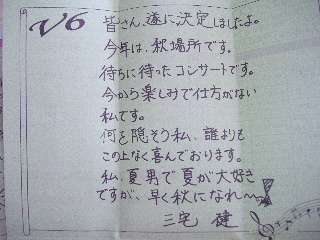 V6
皆さん、遂に決定しましたよ。
今年は、秋場所です。
待ちに待ったコンサートです。
今から楽しみで仕方がない
私です。
何を隠そう私、誰よりも
この上なく喜んでおります。
私、夏男で夏が大好き
ですが、早く秋になれ〜〜!
三宅 健